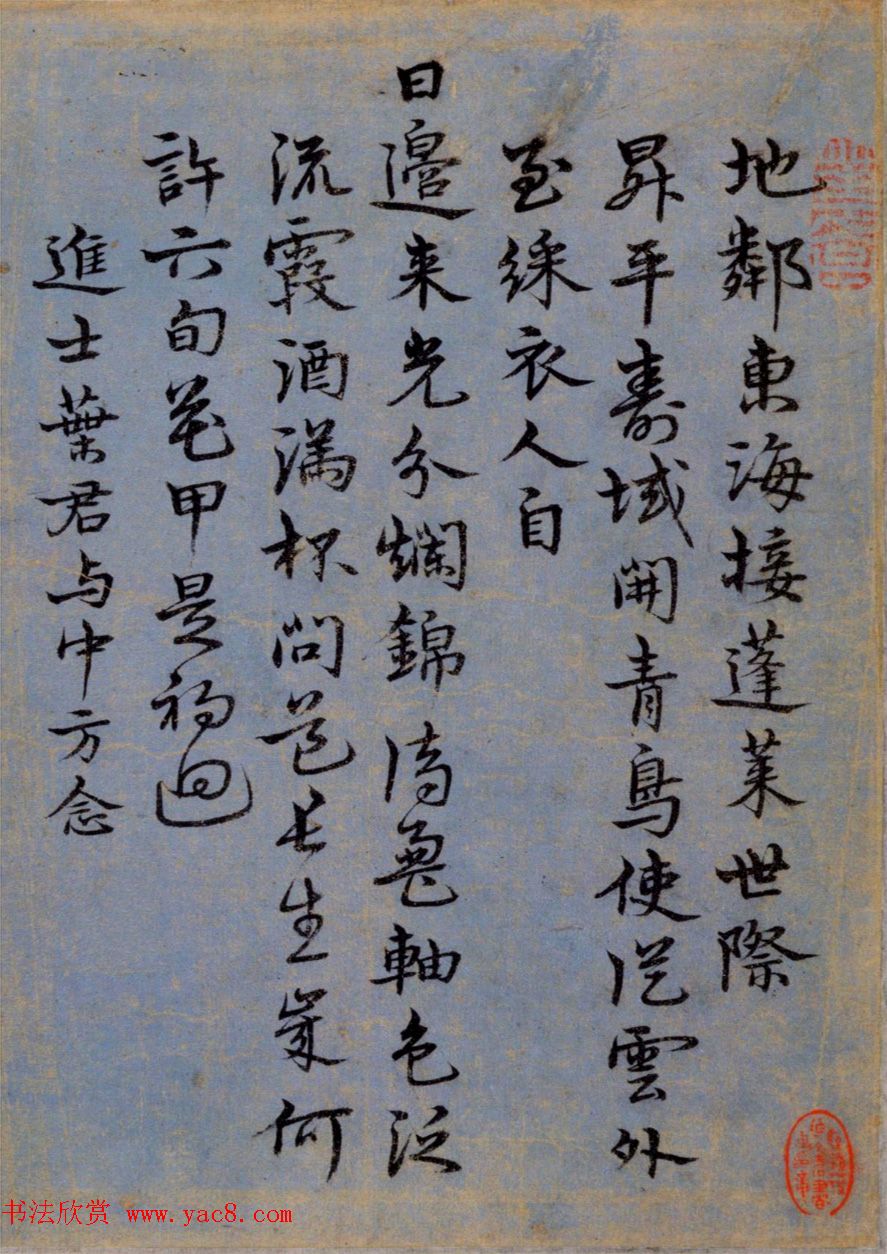 地鄰東海接蓬萊世際
昇平壽域開青鳥使従雲外
至綵衣人自
日邊来光分爛錦詩盈軸色泛
流霞酒滿杯問道長生歲何
許六旬花甲是初迴
進士葉君与中方念
书法欣赏 www.yac8.com